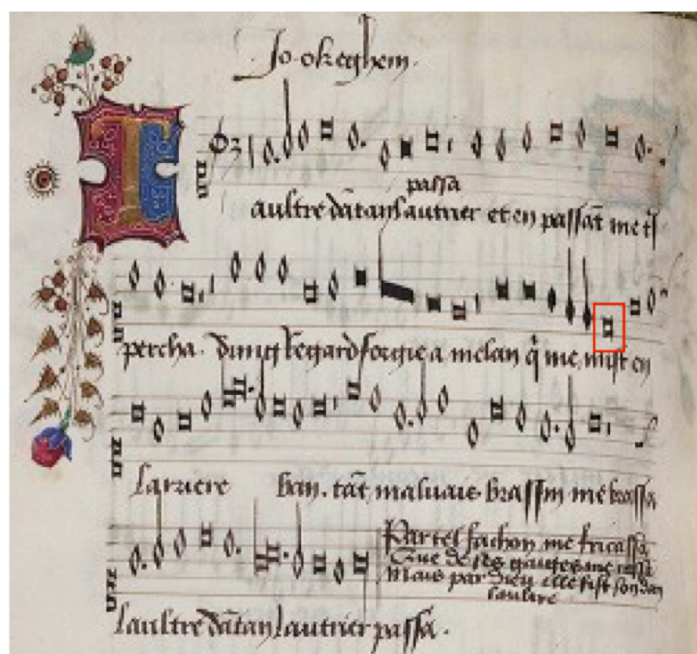 Jo okeghem.
passa
Laultre dãtan lautrier et en passãt me t's
percha. dung regard forgie a melan q̃ me mist en
larriere ban. tãt malvais brassin me brassa
Par tel fachon me fricassa
Mais par dieu elle fist son dan
laultre
laultre dãtan lautrier passa.